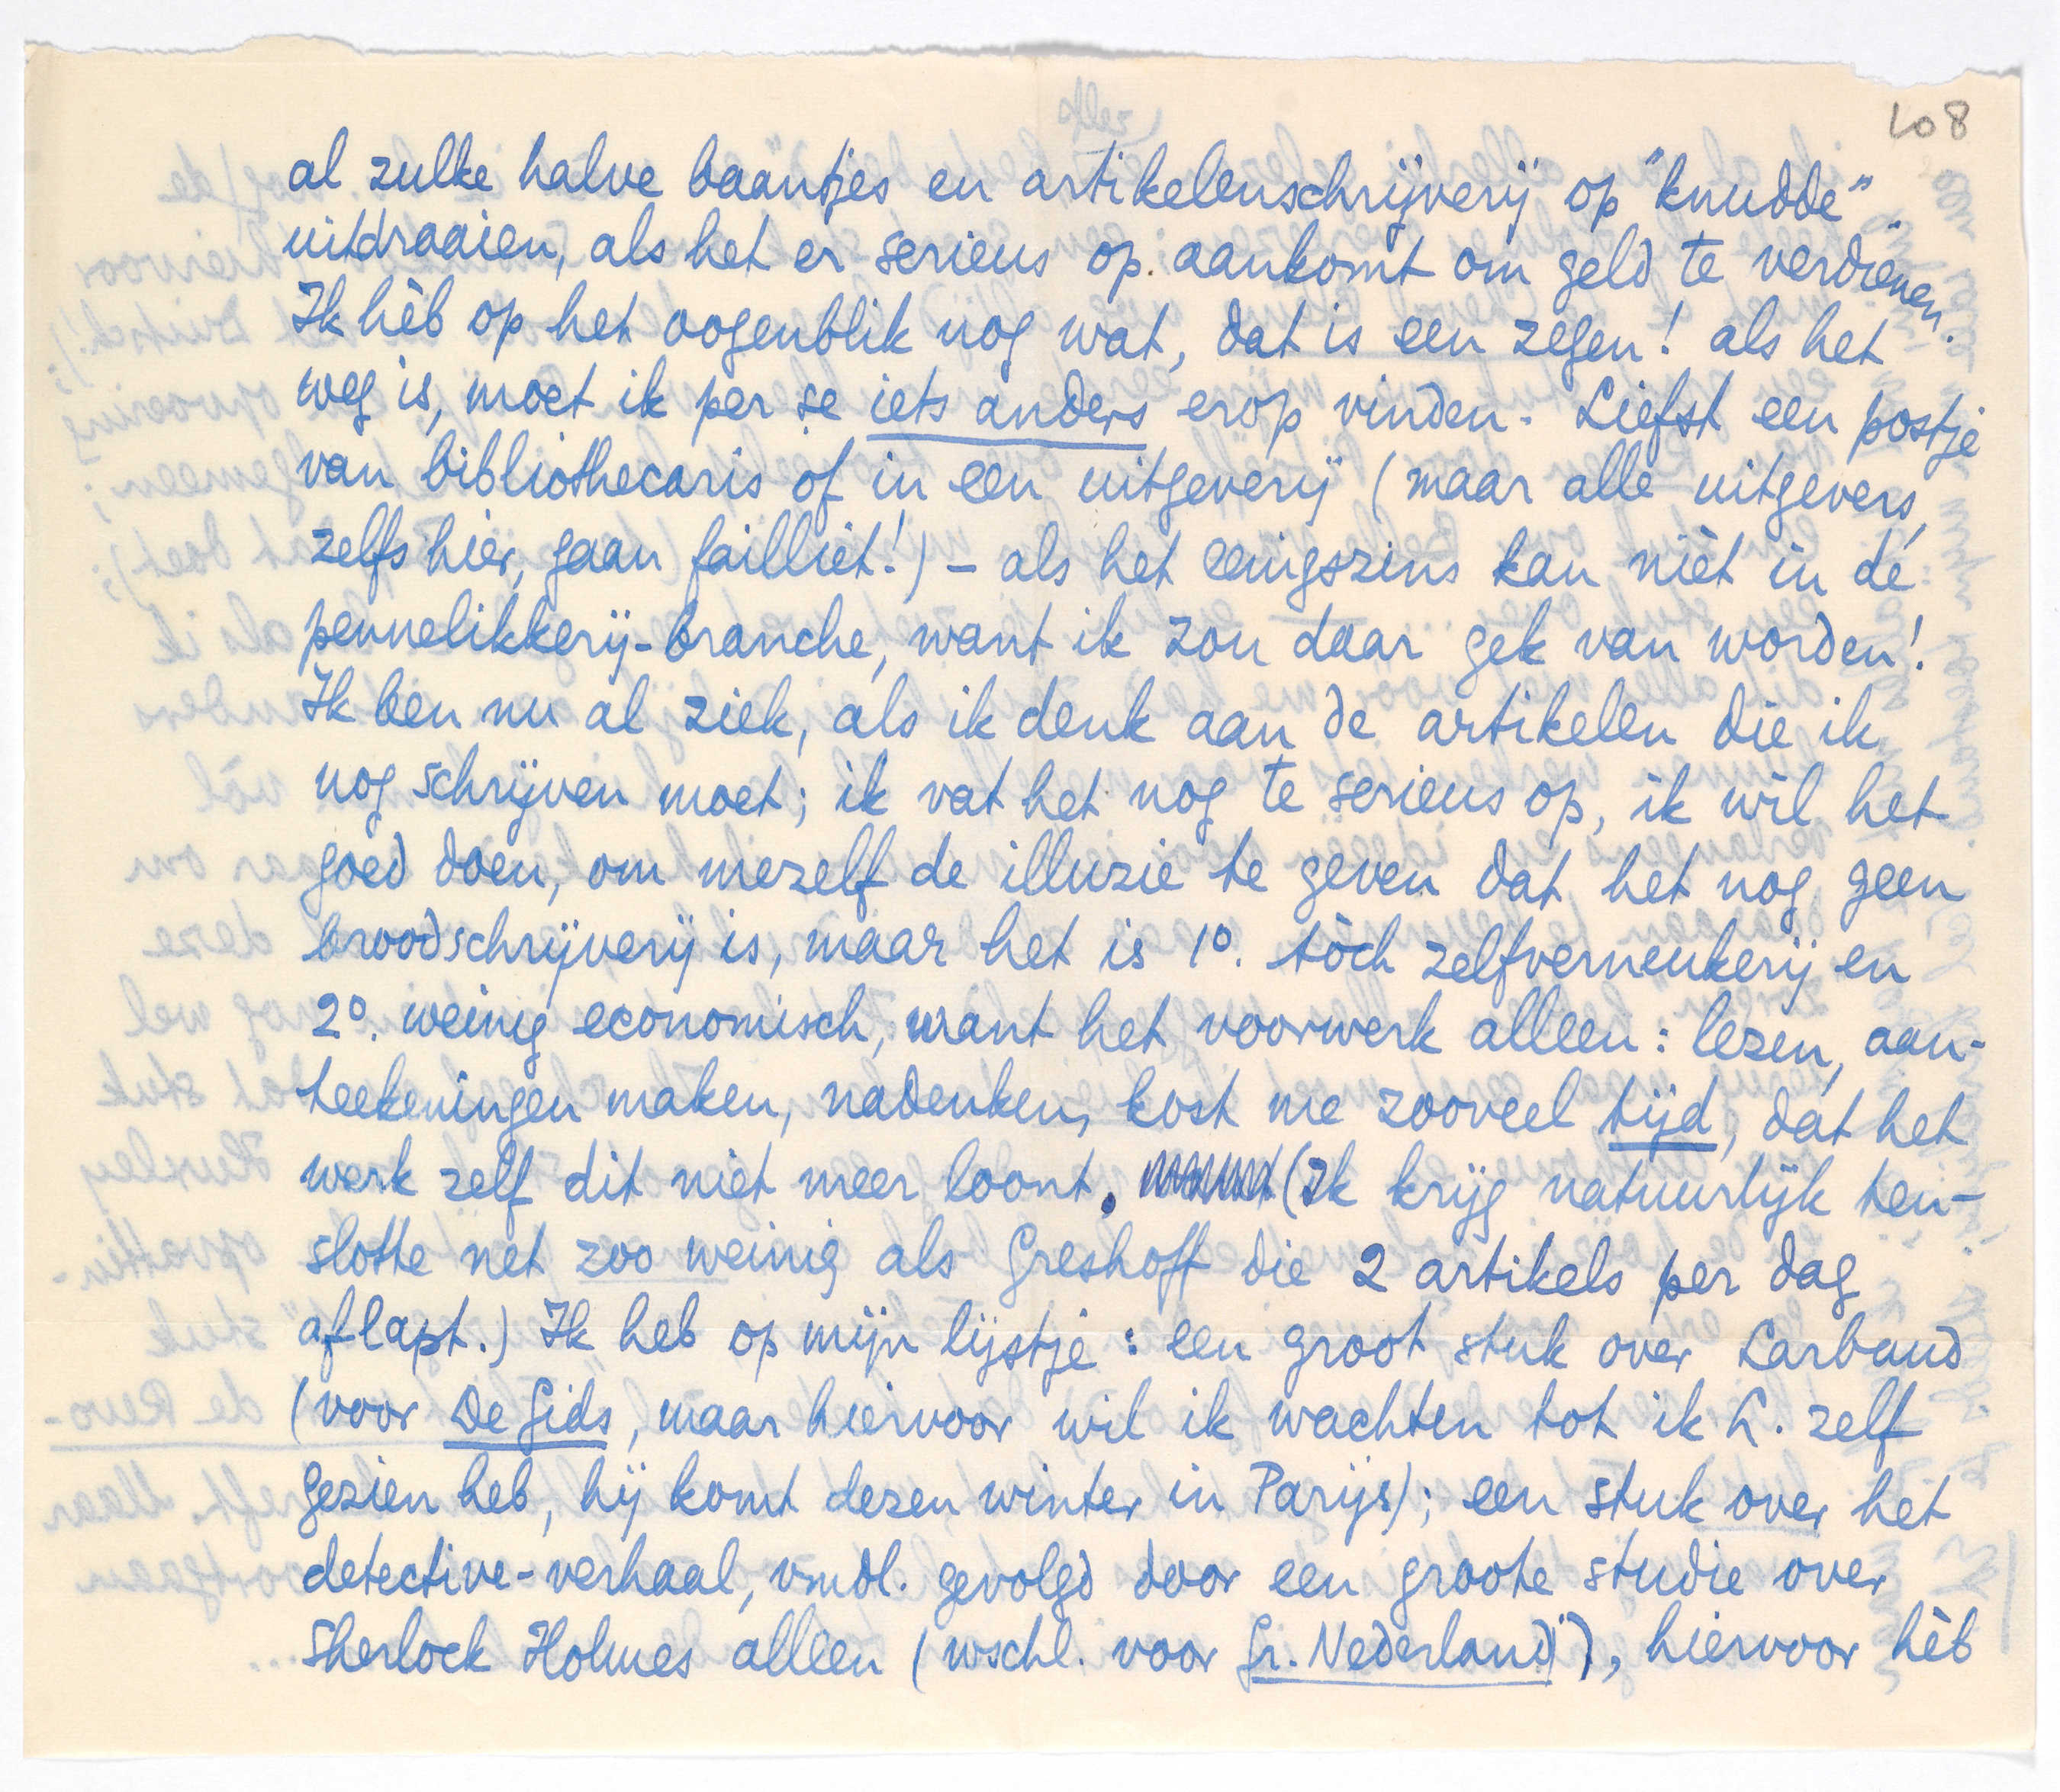 108
al zulke halve baantjes en artikelenschrijverij op "knudde"
uitdraaien, als het er serieus op aankomt om geld te verdienen.
Ik hèb op het oogenblik nog wat, dat is een zegen! als het
weg is, moet ik per se iets anders erop vinden. Liefst een postje
van bibliothecaris of in een uitgeverij (maar alle uitgevers,
zelfs hier, gaan failliet!) – als het eenigszins kan nièt in de
pennelikkerij-branche, want ik zou daar gek van worden!
Ik ben nu al ziek, als ik denk aan de artikelen die ik
nog schrijven moet; ik vat het nog te serieus op, ik wil het
goed doen, om mezelf de illuzie te geven dat het nog geen
broodschrijverij is, maar het is 1º. tòch zelfverneukerij en
2º. weinig economisch, want het voorwerk alleen: lezen, aan-
teekeningen maken, nadenken, kost me zooveel tijd, dat het
werk zelf dit niet meer loont. (Ik krijg natuurlijk ten-
slotte net zoo weinig als Greshoff die 2 artikels per dag
aflapt.) Ik heb op mijn lijstje: een groot stuk over Larbaud
(voor De Gids, maar hiervoor wil ik wachten tot ik L. zelf
gezien heb, hij komt dezen winter in Parijs); een stuk over het
detective-verhaal, vmdl. gevolgd door een groote studie over
Sherlock Holmes alleen (wschl. voor Gr. Nederland), hiervoor hèb